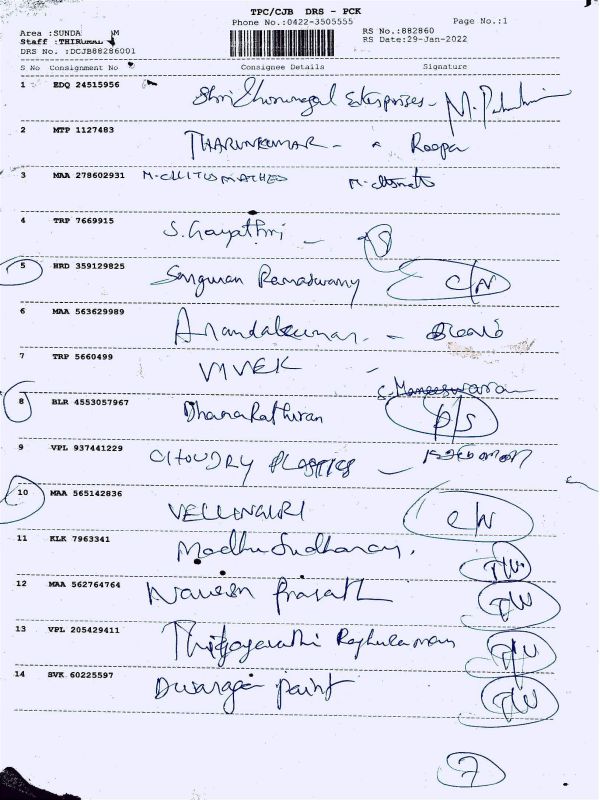 TPC/CJB DRS - PCK
Phone No.:0422-3505555 Page No.:1
Area :SUNDA M
Staff :THIRUMAL
DRS No. :DCJB88286001
RS No.:882860
RS Date:29-Jan-2022
S No Consignment No Consignee Details Signature
1 EDQ 24515956 Enterprises - M.
2 MTP 1127483 THARUNKUMAR - Roopa
3 MAA 278602931
4 TRP 7669915 S. Gayathri -
5 HRD 359129825 Ramaswamy C/N
6 MAA 563629989 Anandakumar -
7 TRP 5660499 VIVEK -
8 BLR 4553057967 D/S
9 VPL 937441229 CHOUDRY PLASTICS -
10 MAA 565142836 VELLINGIRI C/N
11 KLK 7963341 Madhu Sudhanan. T/W
12 MAA 562764764 Naveen Prasath T/W
13 VPL 205429411 Raghulaman T/W
14 SVK 60225597 Dwaraga paint T/W
7